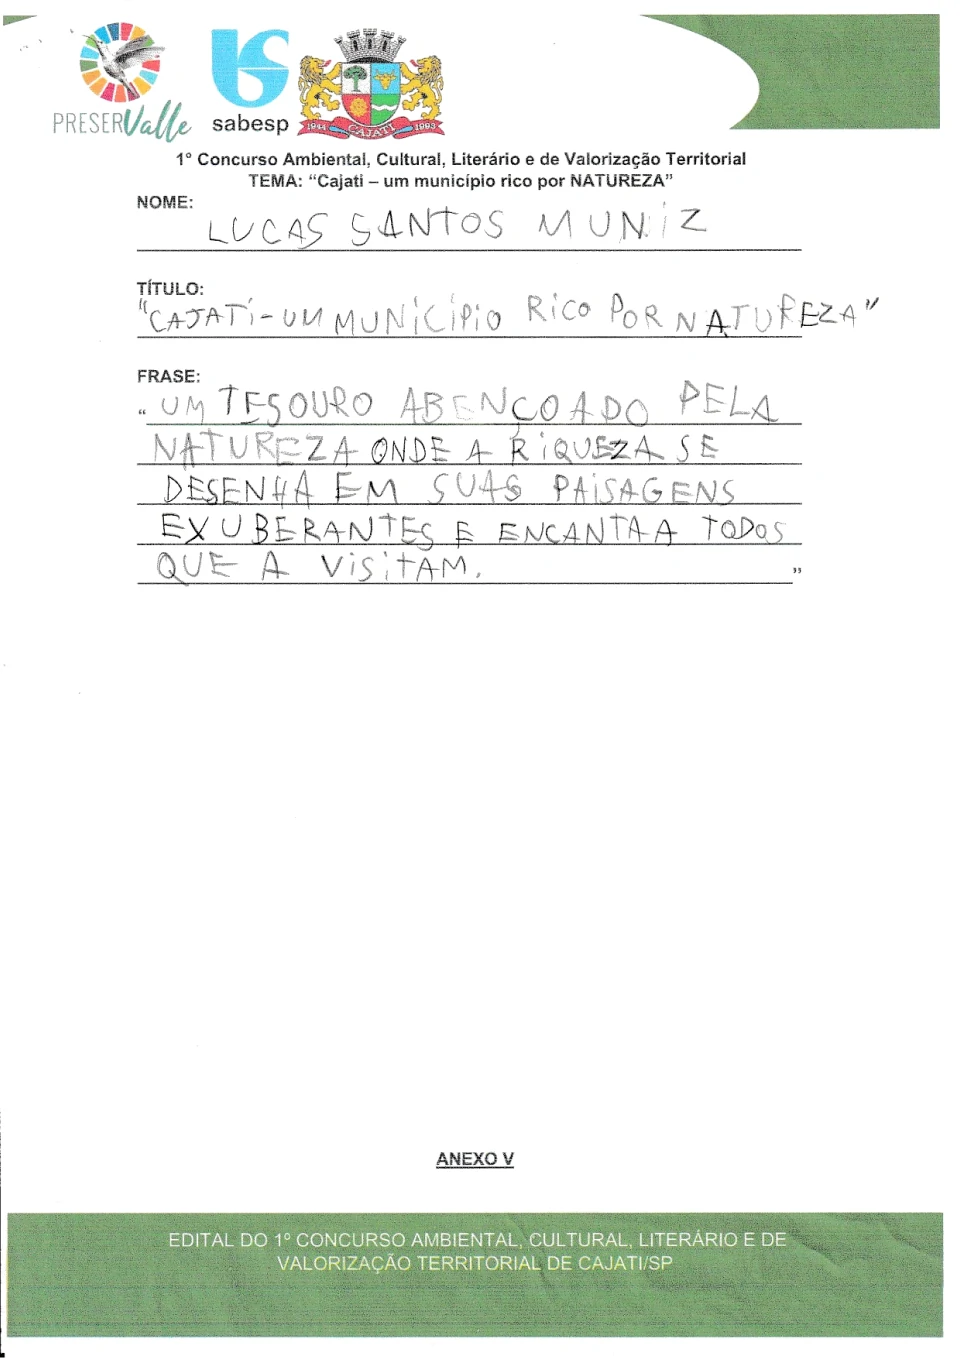 PRESERValle
sabesp
1944 CAJATI 1993
1º Concurso Ambiental, Cultural, Literário e de Valorização Territorial
TEMA: “Cajati – um município rico por NATUREZA”
NOME:
LUCAS SANTOS MUNIZ
TÍTULO:
"CAJATI - UM MUNICÍPIO RICO POR NATUREZA"
FRASE:
“ UM TESOURO ABENÇOADO PELA
NATUREZA ONDE A RIQUEZA SE
DESENHA EM SUAS PAISAGENS
EXUBERANTES E ENCANTA A TODOS
QUE A VISITAM. ”
ANEXO V
EDITAL DO 1º CONCURSO AMBIENTAL, CULTURAL, LITERÁRIO E DE
VALORIZAÇÃO TERRITORIAL DE CAJATI/SP